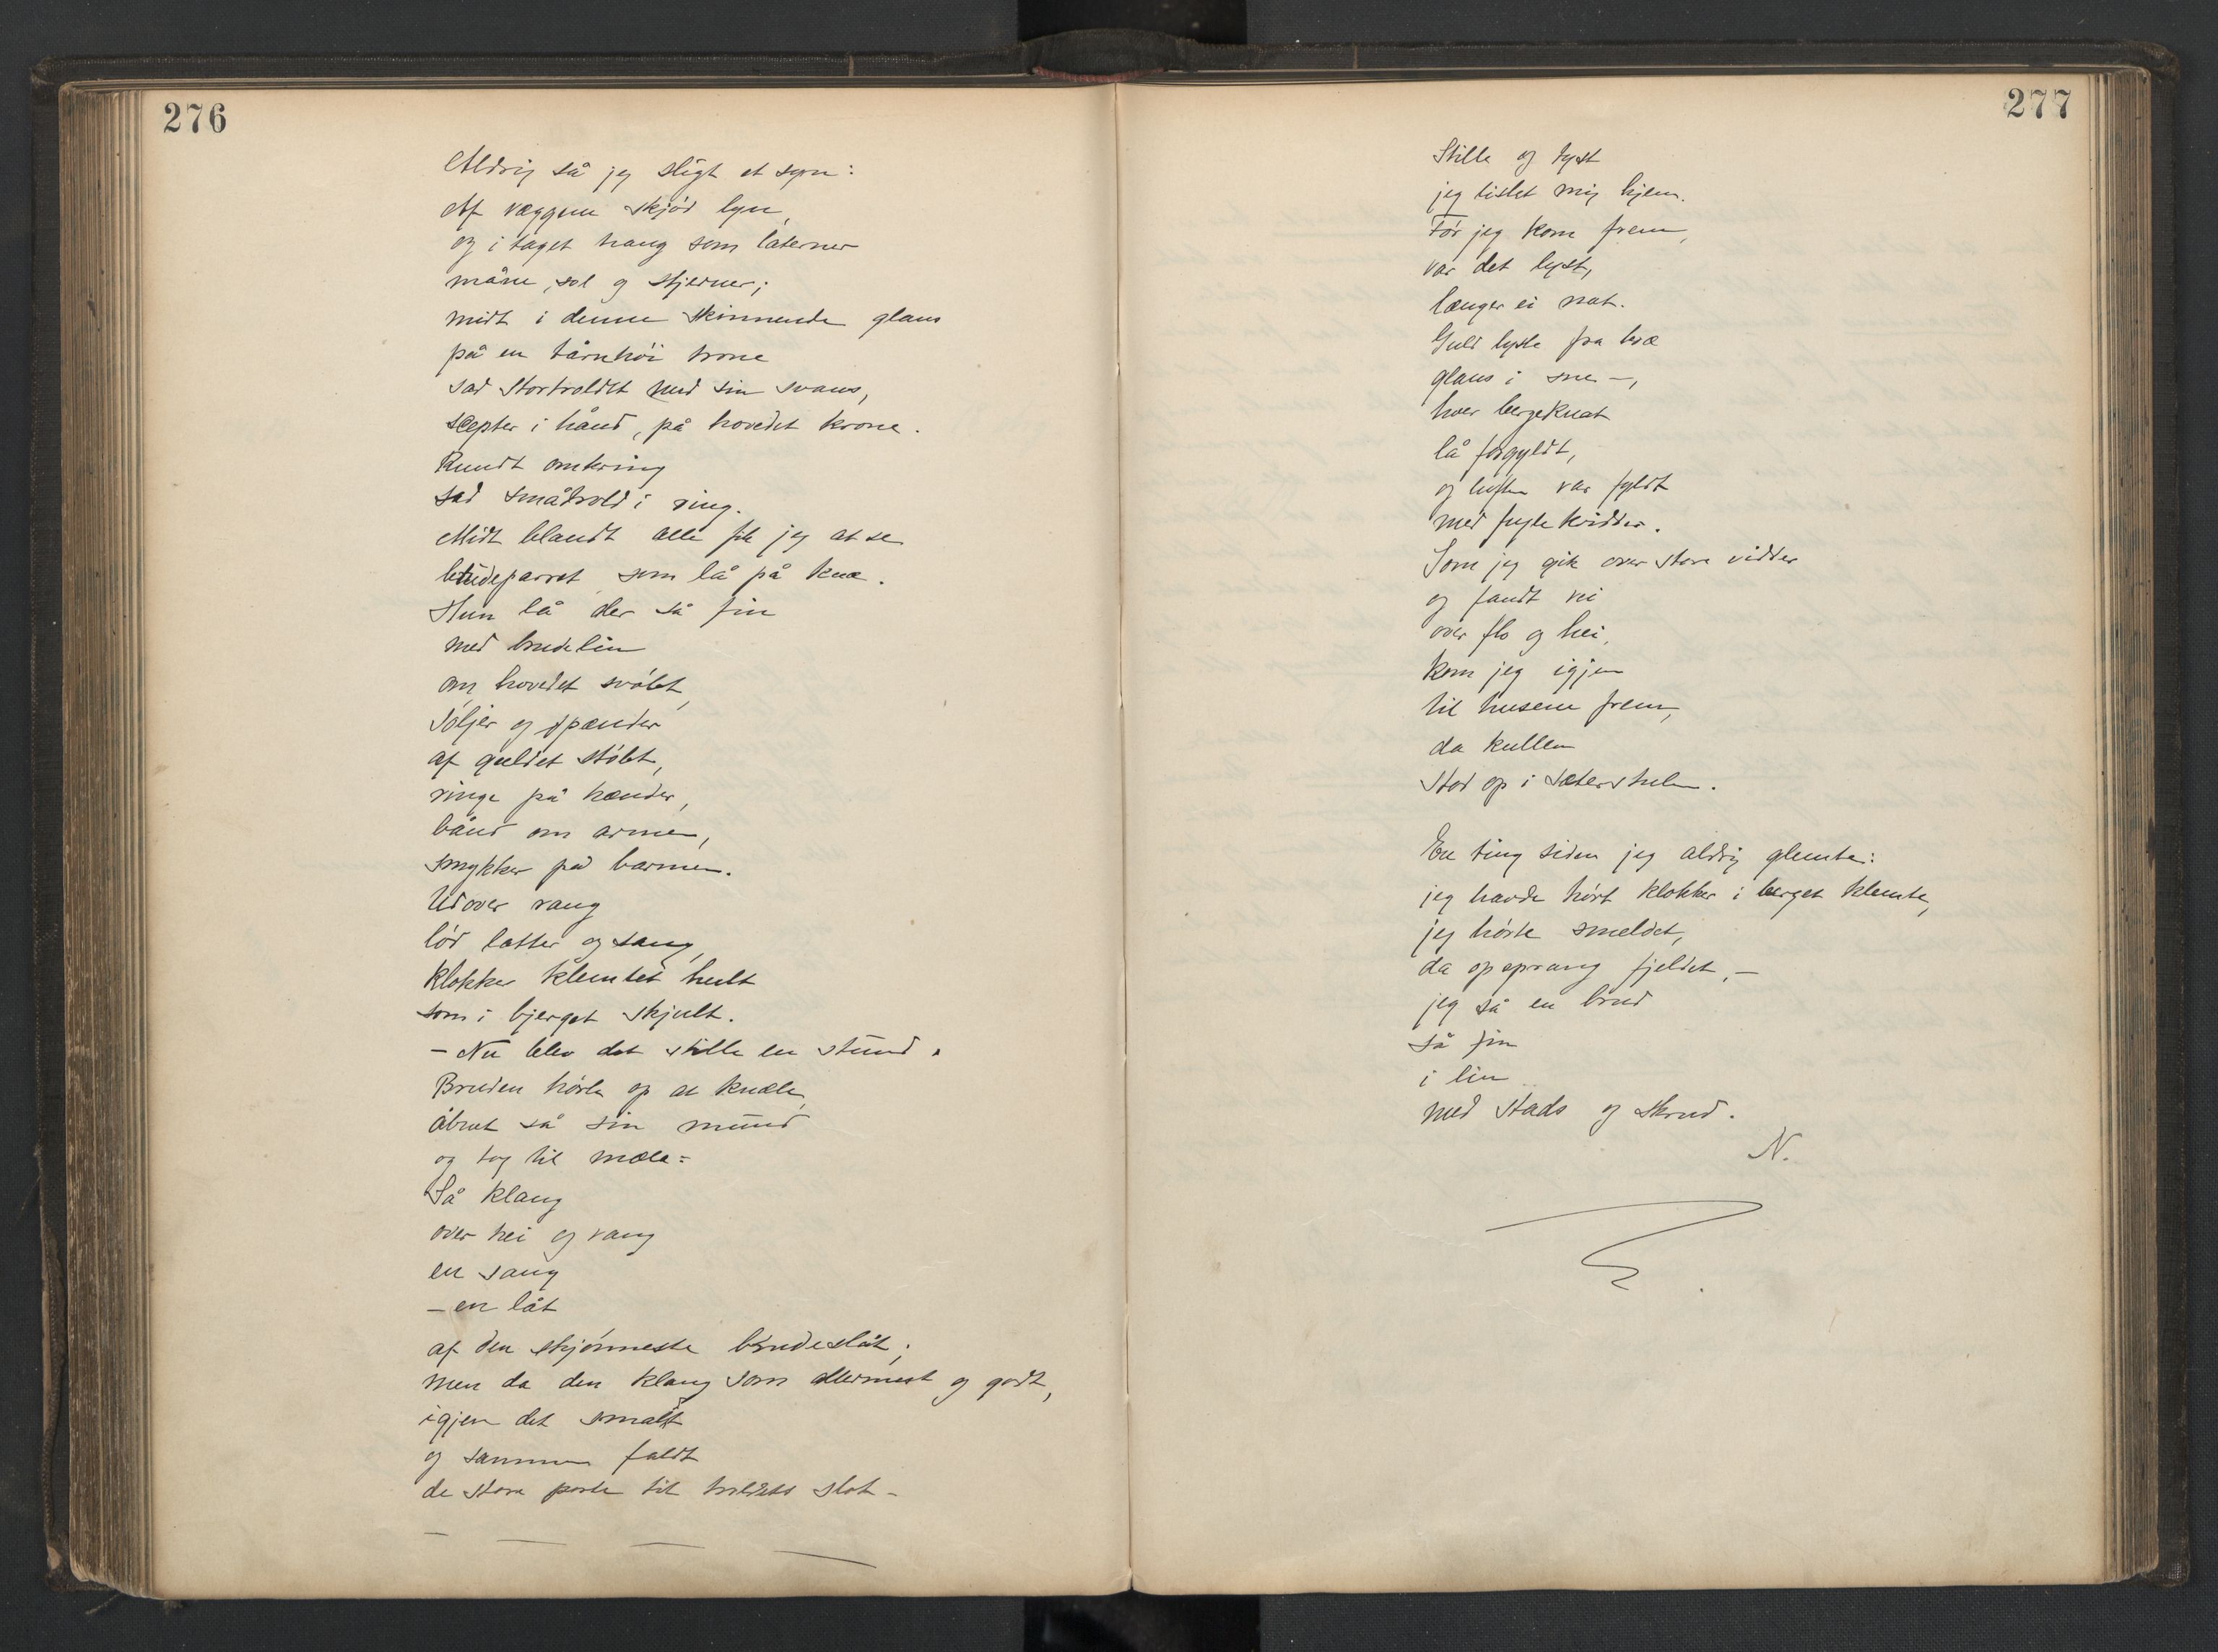 276
Aldrig så jeg sligt et syn:
Af væggene skjød lyn,
og i taget hang som laterner
måne, sol og stjerner;
midt i denne skinnende glans
på en tårnhøi trone
sad stortroldet med sin svans,
scepter i hånd, på hovedet krone.
Rundt omkring
sad småtrold i ring.
Midt blandt alle fik jeg at se
brudeparret som lå på knæ.
Hun lå der så fin
med brudelin
om hovedet svøbt,
Søljer og spænder
af guldet støbt,
ringe på hænder,
bånd om armen,
smykker på barmen.
Udover vang
lød latter og sang,
klokker klemtet hult
som i bjerget skjult.
– Nu blev det stille en stund.
Bruden hørte op at knæle,
åbnet så sin mund
og tog til mæle:
Så klang
over hei og vang
en sang
– en låt
af den skjønneste brudeslåt;
men da den klang som allermest og godt,
igjen det smalt
og sammen faldt
de store porte til troldets slot –
– — — —
277
Stille og tyst
jeg listet mig hjem.
Før jeg kom frem,
var det lyst,
længer ei nat.
Guld lyste fra træ
glans i sne –,
hver bergeknat
lå forgyldt,
og luften var fyldt
med fuglekvidder.
Som jeg gik over store vidder
og fandt vei
over flo og hei,
kom jeg igjen
til husene frem,
da kullen
stod op i sæterstulen.
En ting siden jeg aldrig glemte:
jeg havde hørt klokker i berget klemte,
jeg hørte smeldet,
da opsprang fjeldet, –
jeg så en brud
så fin
i lin
med stads og skrud.
N.